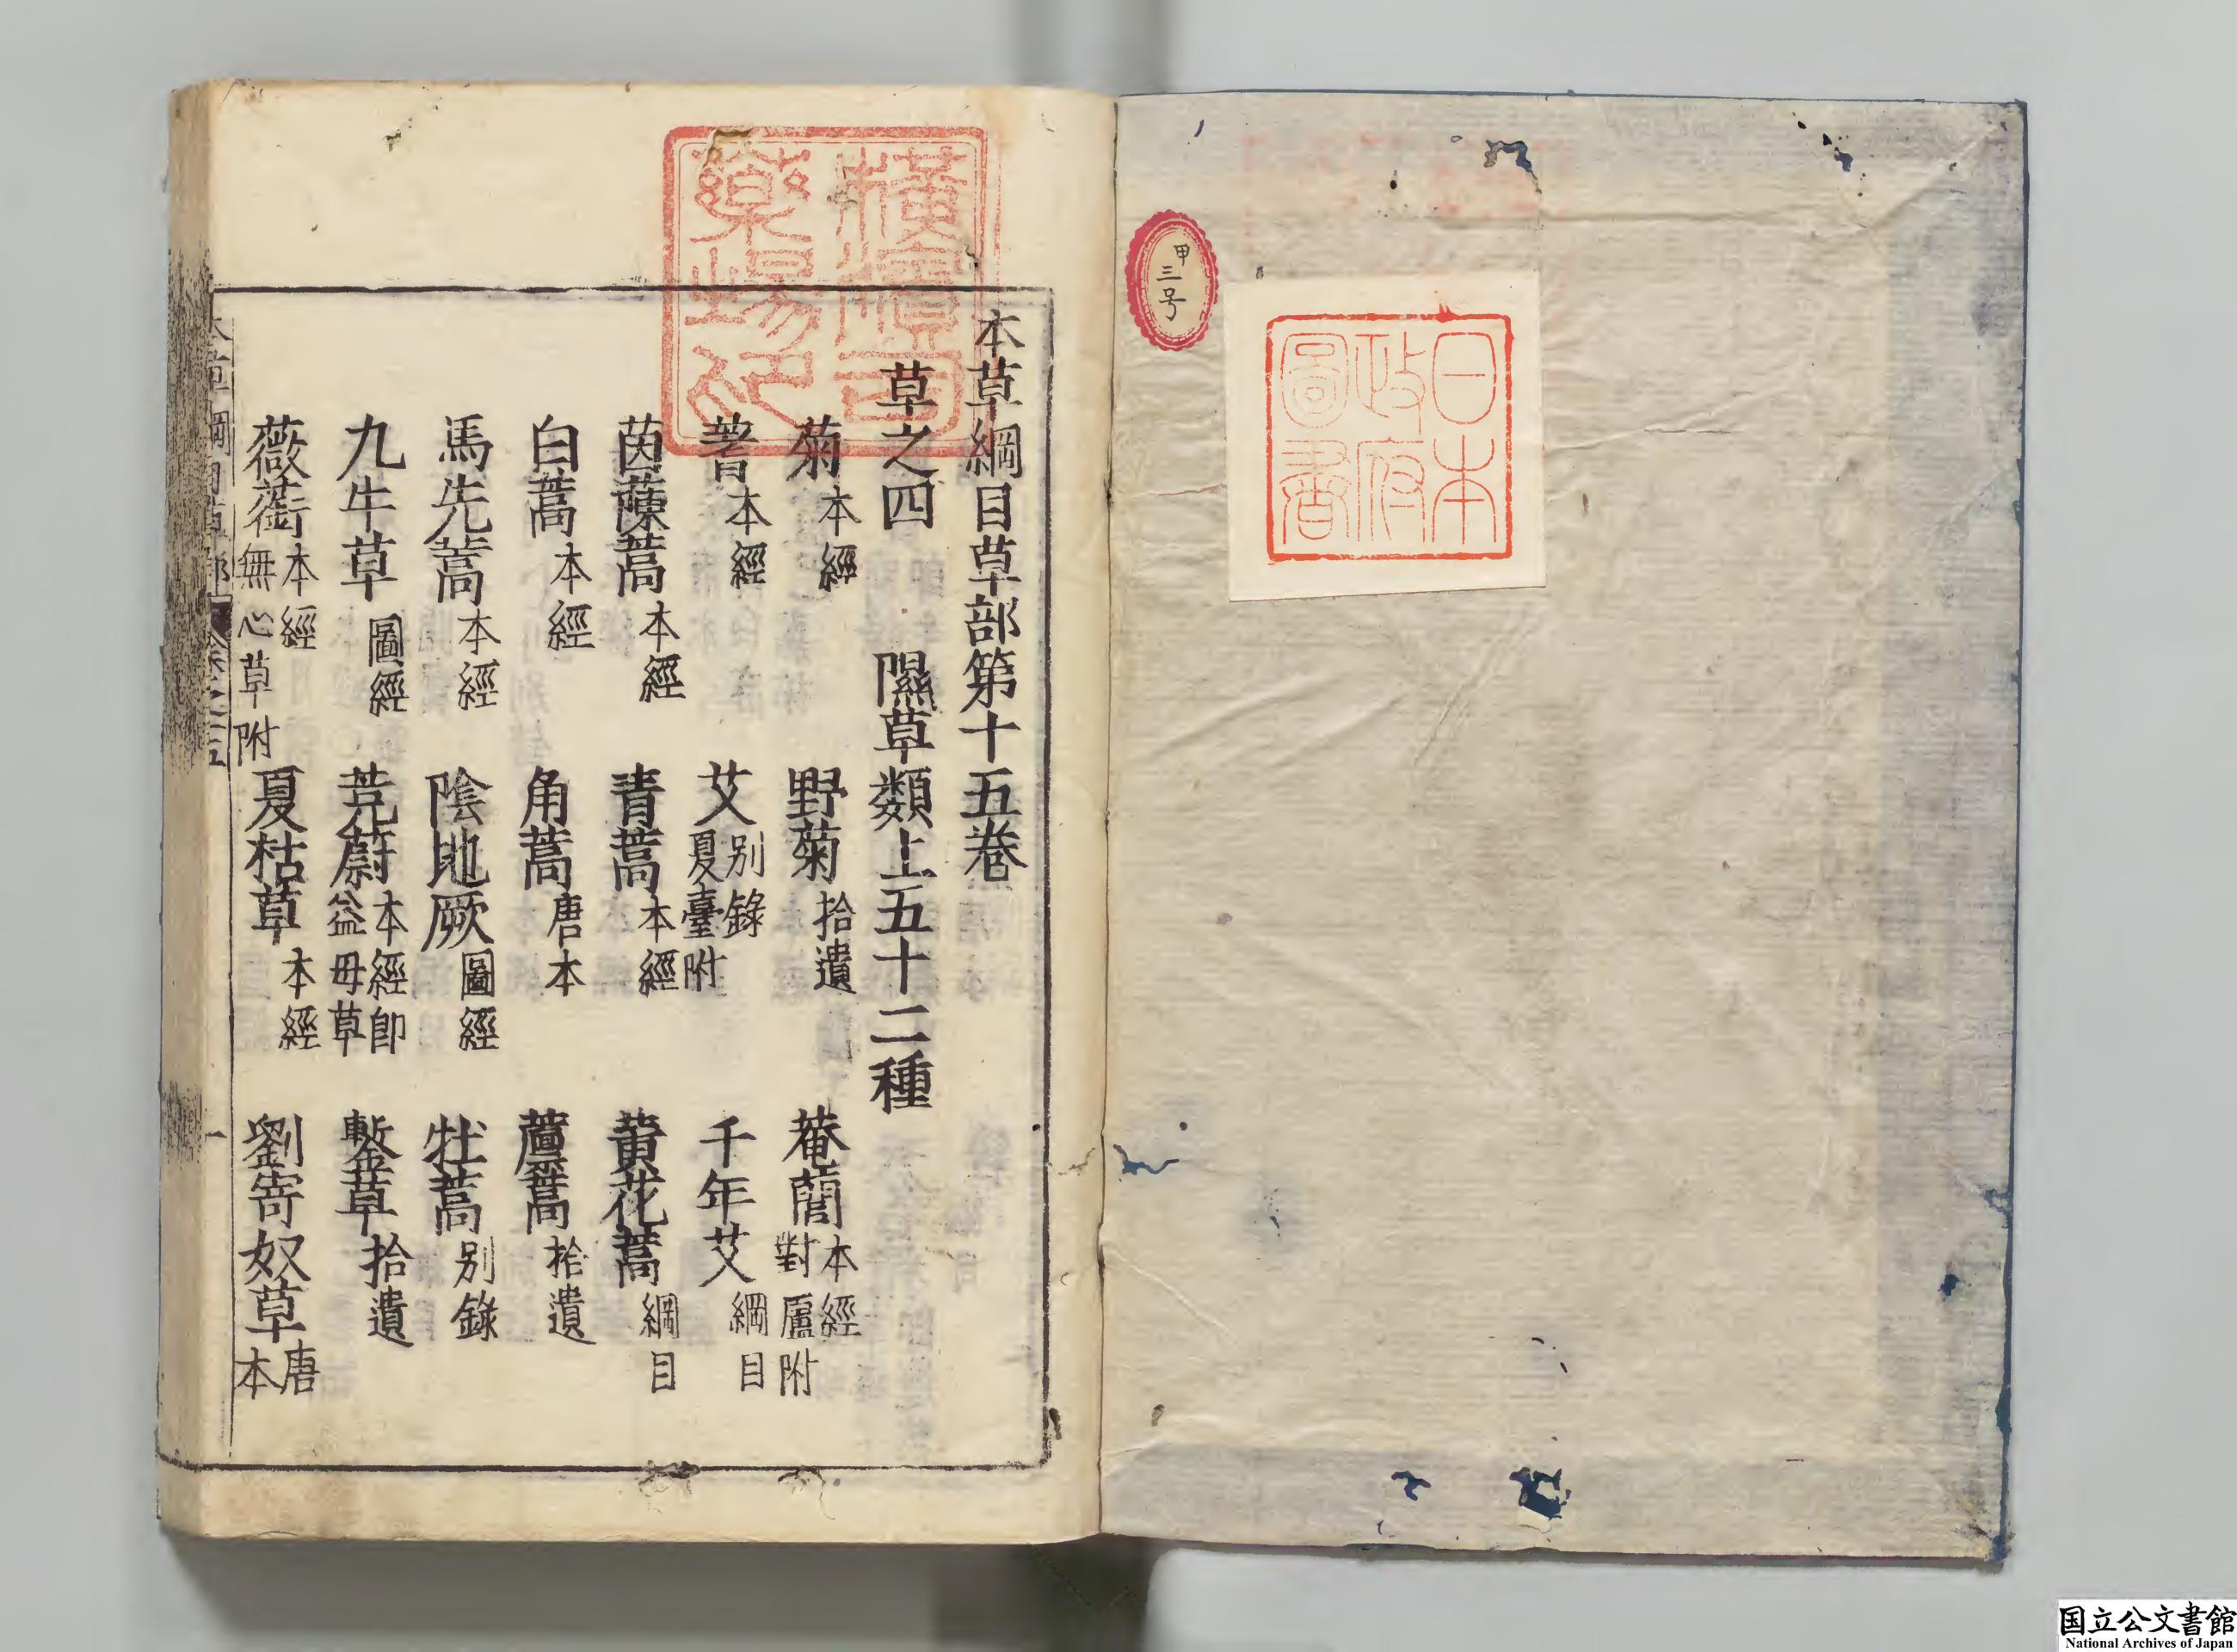 甲三号
日本
政府
圖書
本草綱目草部第十五卷
草之四　隰草類上五十二種
菊本經　野菊拾遺　菴䕡本經對廬附
蓍本經　艾別錄夏臺附　千年艾綱目
茵蔯蒿本經　青蒿本經　黃花蒿綱目
白蒿本經　角蒿唐本　藘蒿拾遺
馬先蒿本經　陰地厥圖經　牡蒿別錄
九牛草圖經　茺蔚本經卽益母草　鏨草拾遺
薇蘅本經無心草附　夏枯草本經　劉寄奴草唐本
本草綱目草部　卷之十五　一
国立公文書館
National Archives of Japan